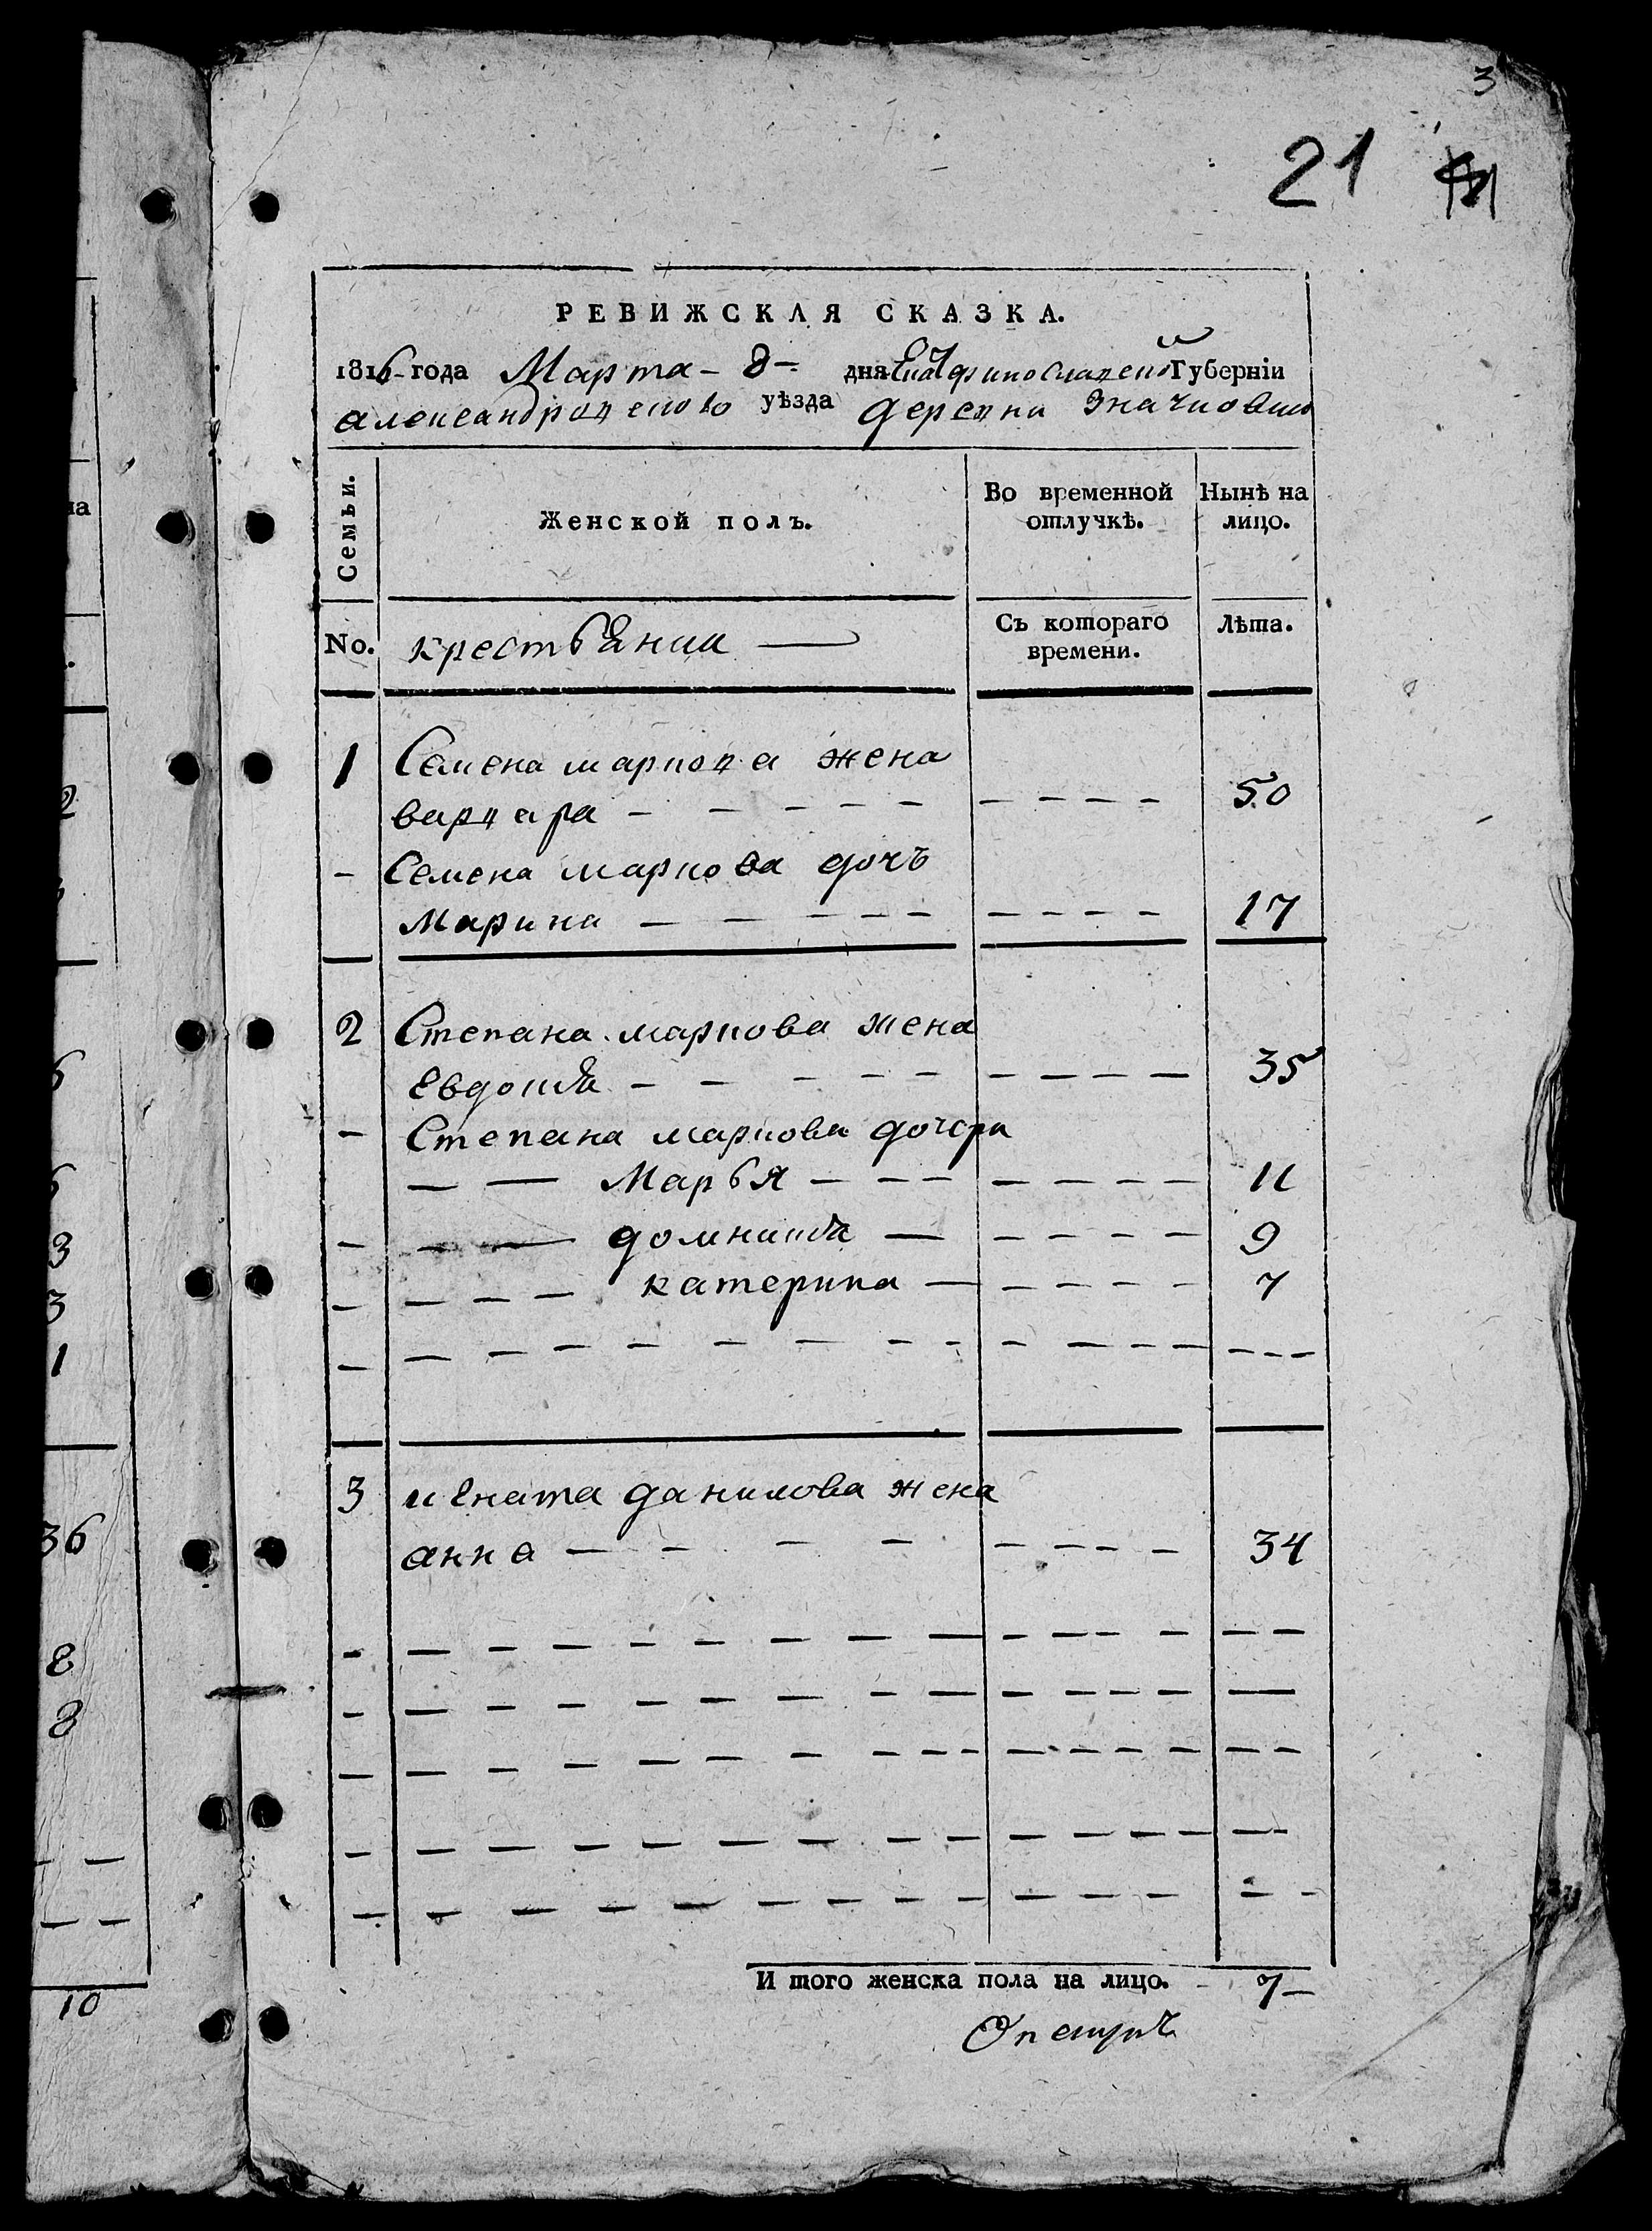 3
21
РЕВИЖСКАЯ СКАЗКА.
1816 года Марта - 8 - дня Екатеринославской Губерніи
александровского уѣзда деревни Значковой
Семьи. Женской полъ. Во временной отлучкѣ. Нынѣ на лицо.
No. крестьянии Съ котораго времени. Лѣта.
1 Семена маркова жена
варвара - - - - - - - - - 50
- Семена маркова дочъ
Марина - - - - - - - - - 17
2 Степана маркова жена
Евдокия - - - - - - - - - 35
- Степана маркова дочери
- - Марья - - - - - - - - 11
- - - домникия - - - - - 9
- - - - катерина - - - - - 7
3 игната данилова жена
анна - - - - - - - - 34
И того женска пола на лицо. - 7 -
на
2
6
3
3
1
36
8
8
10